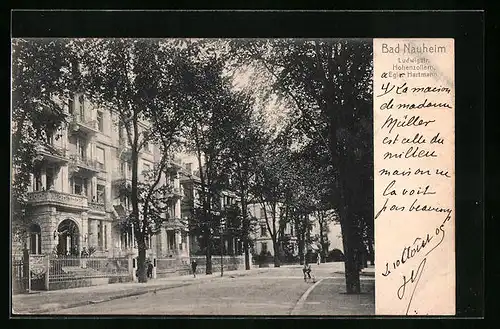 Bad Nauheim
Ludwigstr.
Hohenzollern,
Egler Hartmann
La maison
de madame
Müller
est celle du
millieu
maison
la voit
pas beaucoup
10 Août 05